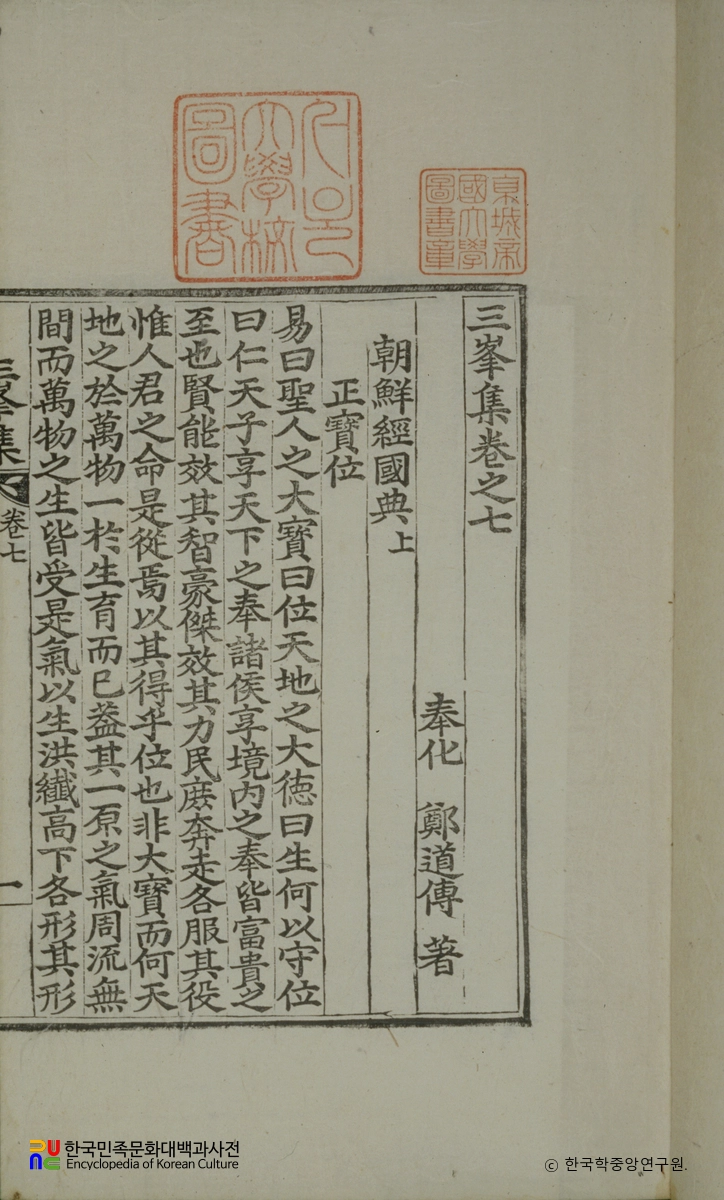 京城帝
國大學
圖書章
大學校
圖書
三峯集卷之七
奉化 鄭道傳 著
朝鮮經國典 上
正寶位
易曰聖人之大寶曰位天地之大德曰生何以守位
曰仁天子享天下之奉諸侯享境內之奉皆富貴之
至也賢能效其智豪傑效其力民庶奔走各服其役
惟人君之命是從焉以其得乎位也非大寶而何天
地之於萬物一於生育而已蓋其一原之氣周流無
間而萬物之生皆受是氣以生洪纖高下各形其形
三峯集 卷七 一
한국민족문화대백과사전
Encyclopedia of Korean Culture
© 한국학중앙연구원.